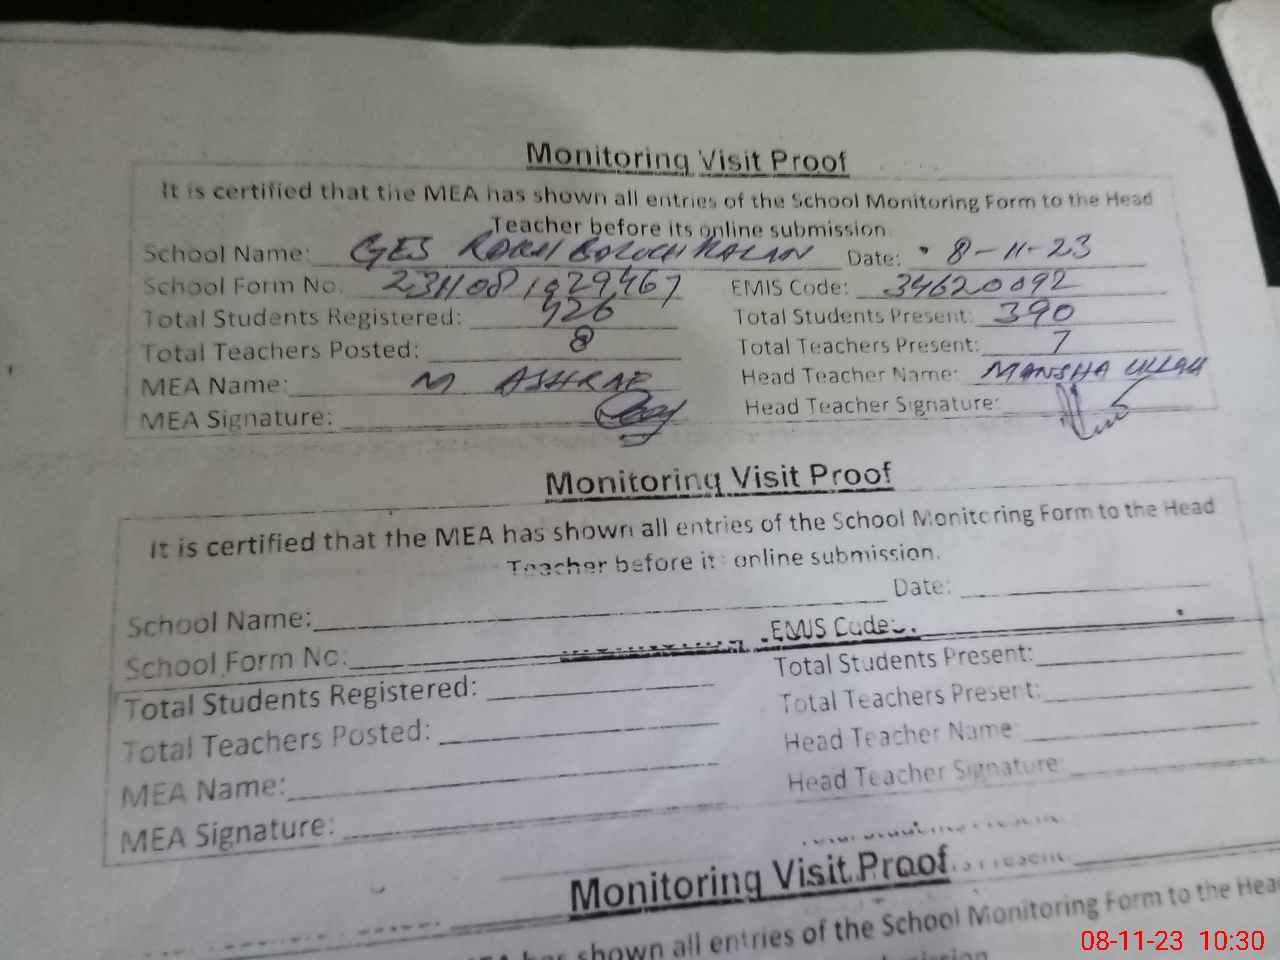 Monitoring Visit Proof
It is certified that the MEA has shown all entries of the School Monitoring Form to the Head
Teacher before its online submission.
School Name: GES KALAN Date: 8-11-23
School Form No. EMIS Code: 34620092
Total Students Registered: 426 Total Students Present: 390
Total Teachers Posted: 8 Total Teachers Present: 7
MEA Name: M ASHRAF Head Teacher Name: MANSHA ULLAH
MEA Signature: Head Teacher Signature:
Monitoring Visit Proof
It is certified that the MEA has shown all entries of the School Monitoring Form to the Head
Teacher before its online submission.
School Name: Date:
School Form No: EMIS Code:
Total Students Registered: Total Students Present:
Total Teachers Posted: Total Teachers Present:
MEA Name: Head Teacher Name:
MEA Signature: Head Teacher Signature:
Monitoring Visit Proof
MEA has shown all entries of the School Monitoring Form to the Head
08-11-23 10:30